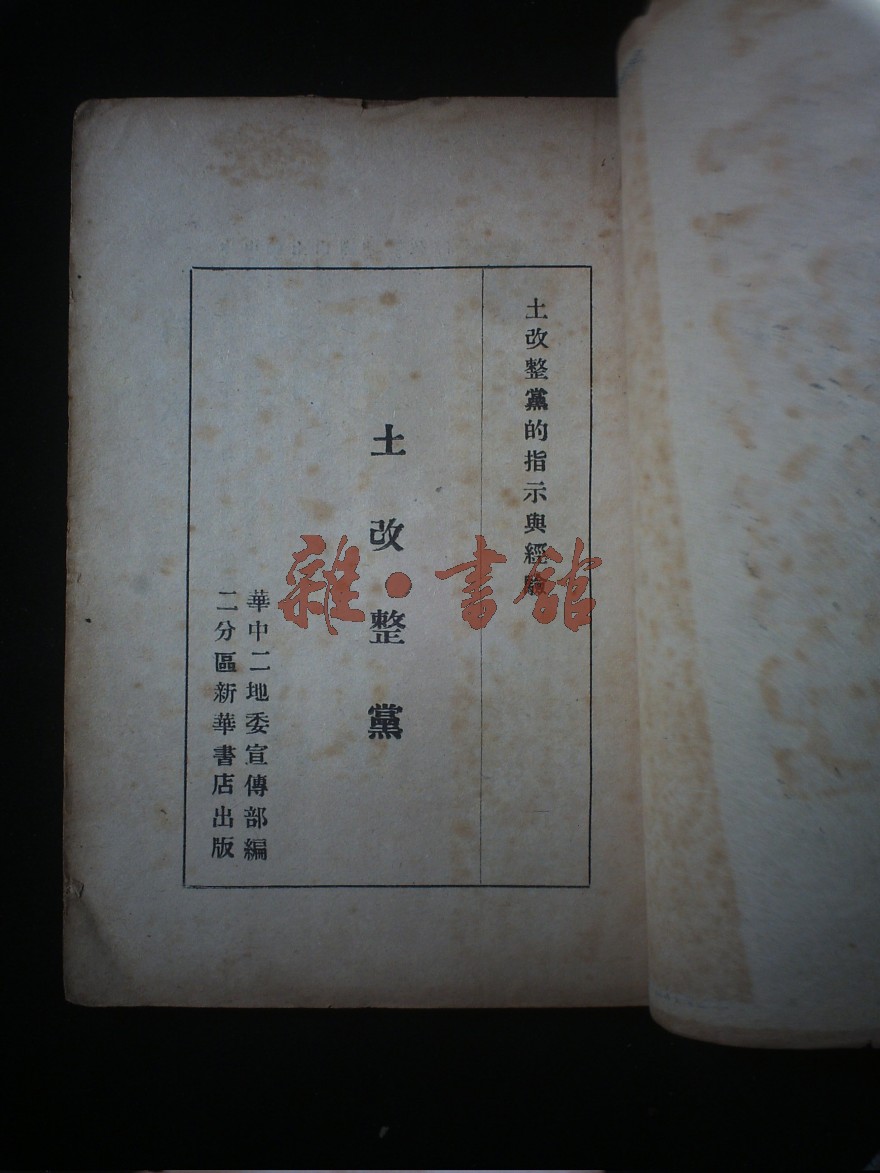 土改整黨的指示與經驗
土改整黨
華中二地委宣傳部編
二分區新華書店出版
雜·書館